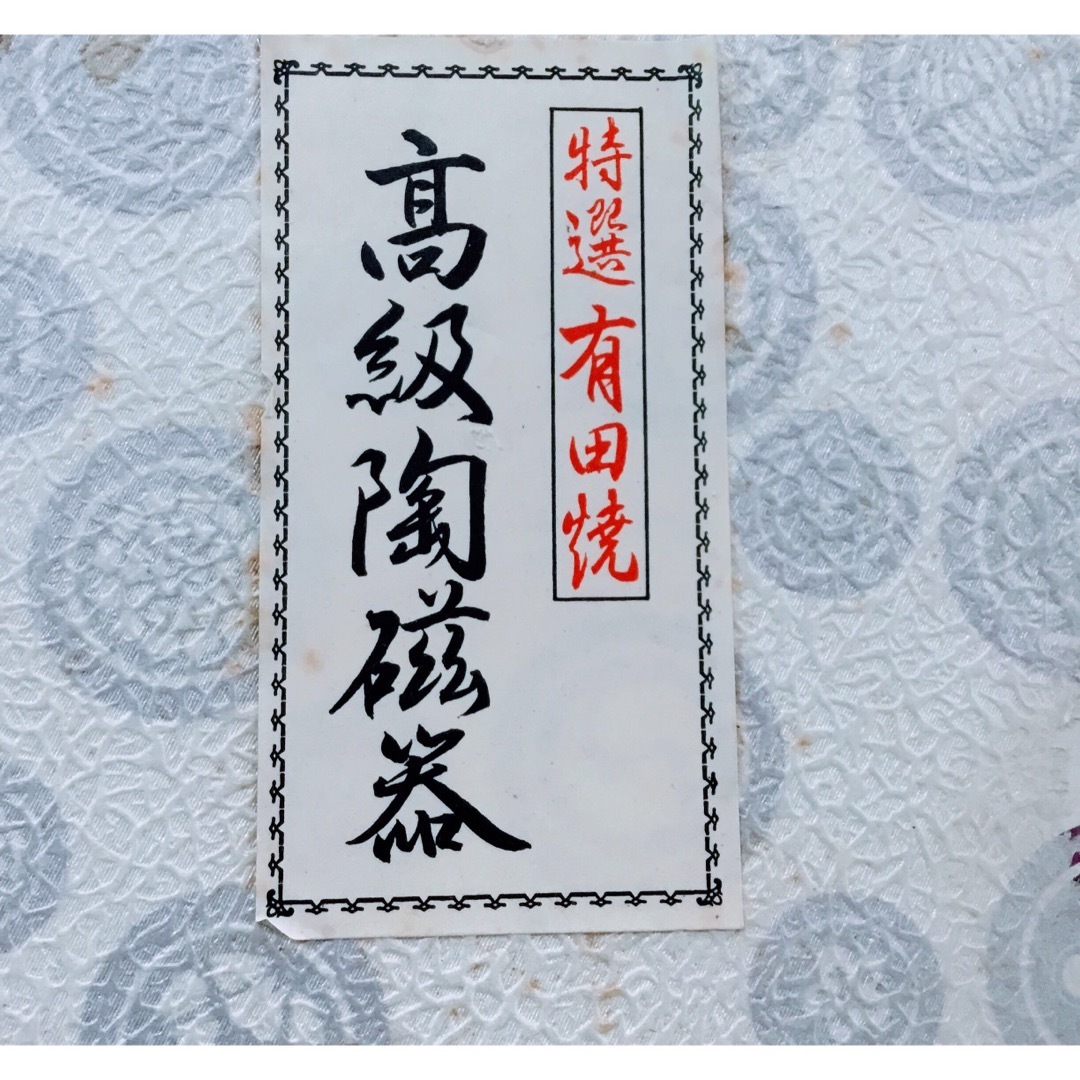 特選有田焼
高級陶磁器